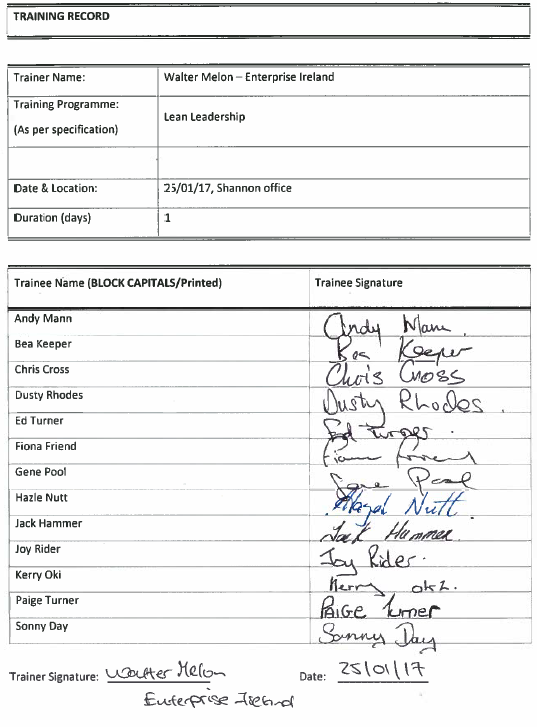 TRAINING RECORD
Trainer Name: Walter Melon – Enterprise Ireland
Training Programme:
(As per specification) Lean Leadership
Date & Location: 25/01/17, Shannon office
Duration (days) 1
Trainee Name (BLOCK CAPITALS/Printed) Trainee Signature
Andy Mann Andy Mann
Bea Keeper Bea Keeper
Chris Cross Chris Cross
Dusty Rhodes Dusty Rhodes
Ed Turner Ed Turner
Fiona Friend Fiona Friend
Gene Pool Gene Pool
Hazle Nutt Hazel Nutt
Jack Hammer Jack Hammer
Joy Rider Joy Rider
Kerry Oki Kerry Oki
Paige Turner PAIGE Turner
Sonny Day Sonny Day
Trainer Signature: Walter Melon Date: 25/01/17
Enterprise Ireland